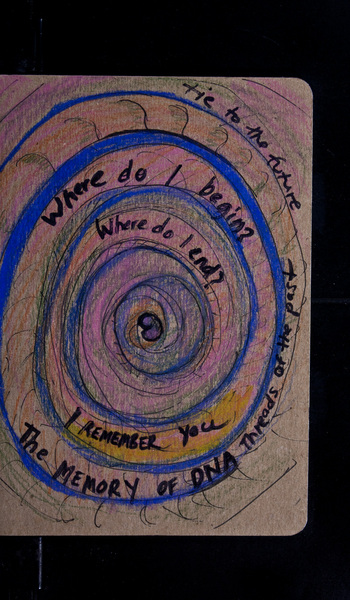 Where do I begin?
Where do I end?
I REMEMBER you
The MEMORY OF DNA
Threads of the past
tie to the future